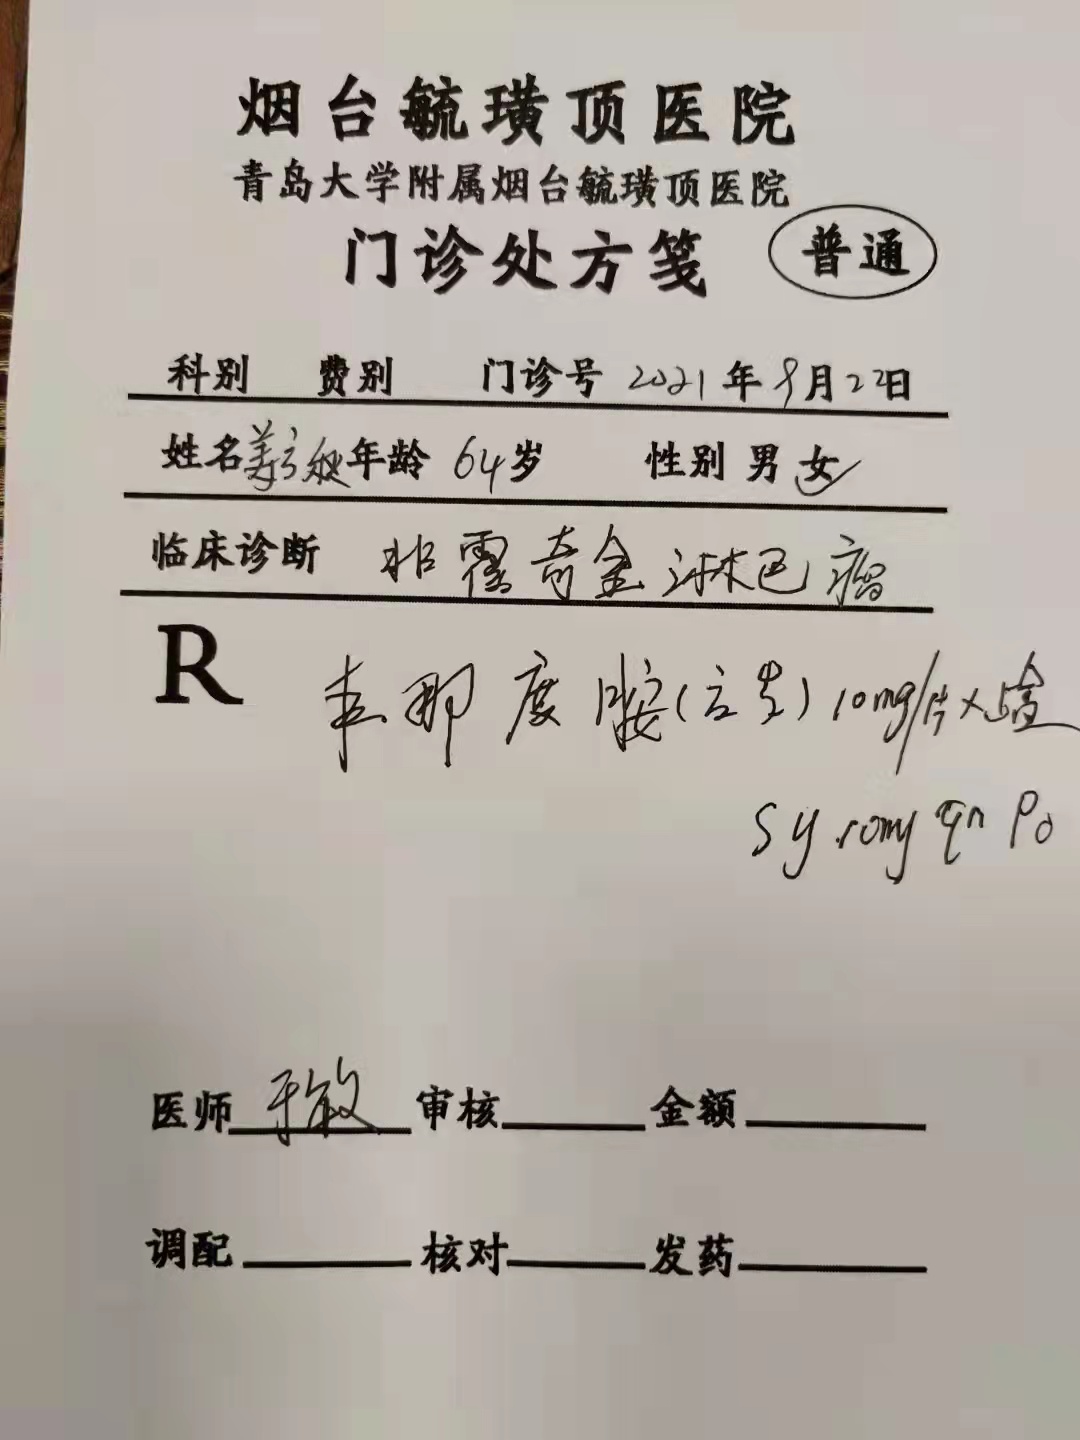 烟台毓璜顶医院
青岛大学附属烟台毓璜顶医院
门诊处方笺 普通
科别 费别 门诊号 2021年9月22日
姓名 年龄 64岁 性别 男 女
临床诊断 非霍奇金淋巴瘤
R
来那度胺(立生) 10mg/片×盒
Sy 10mg qn Po
医师 于敏 审核 金额
调配 核对 发药